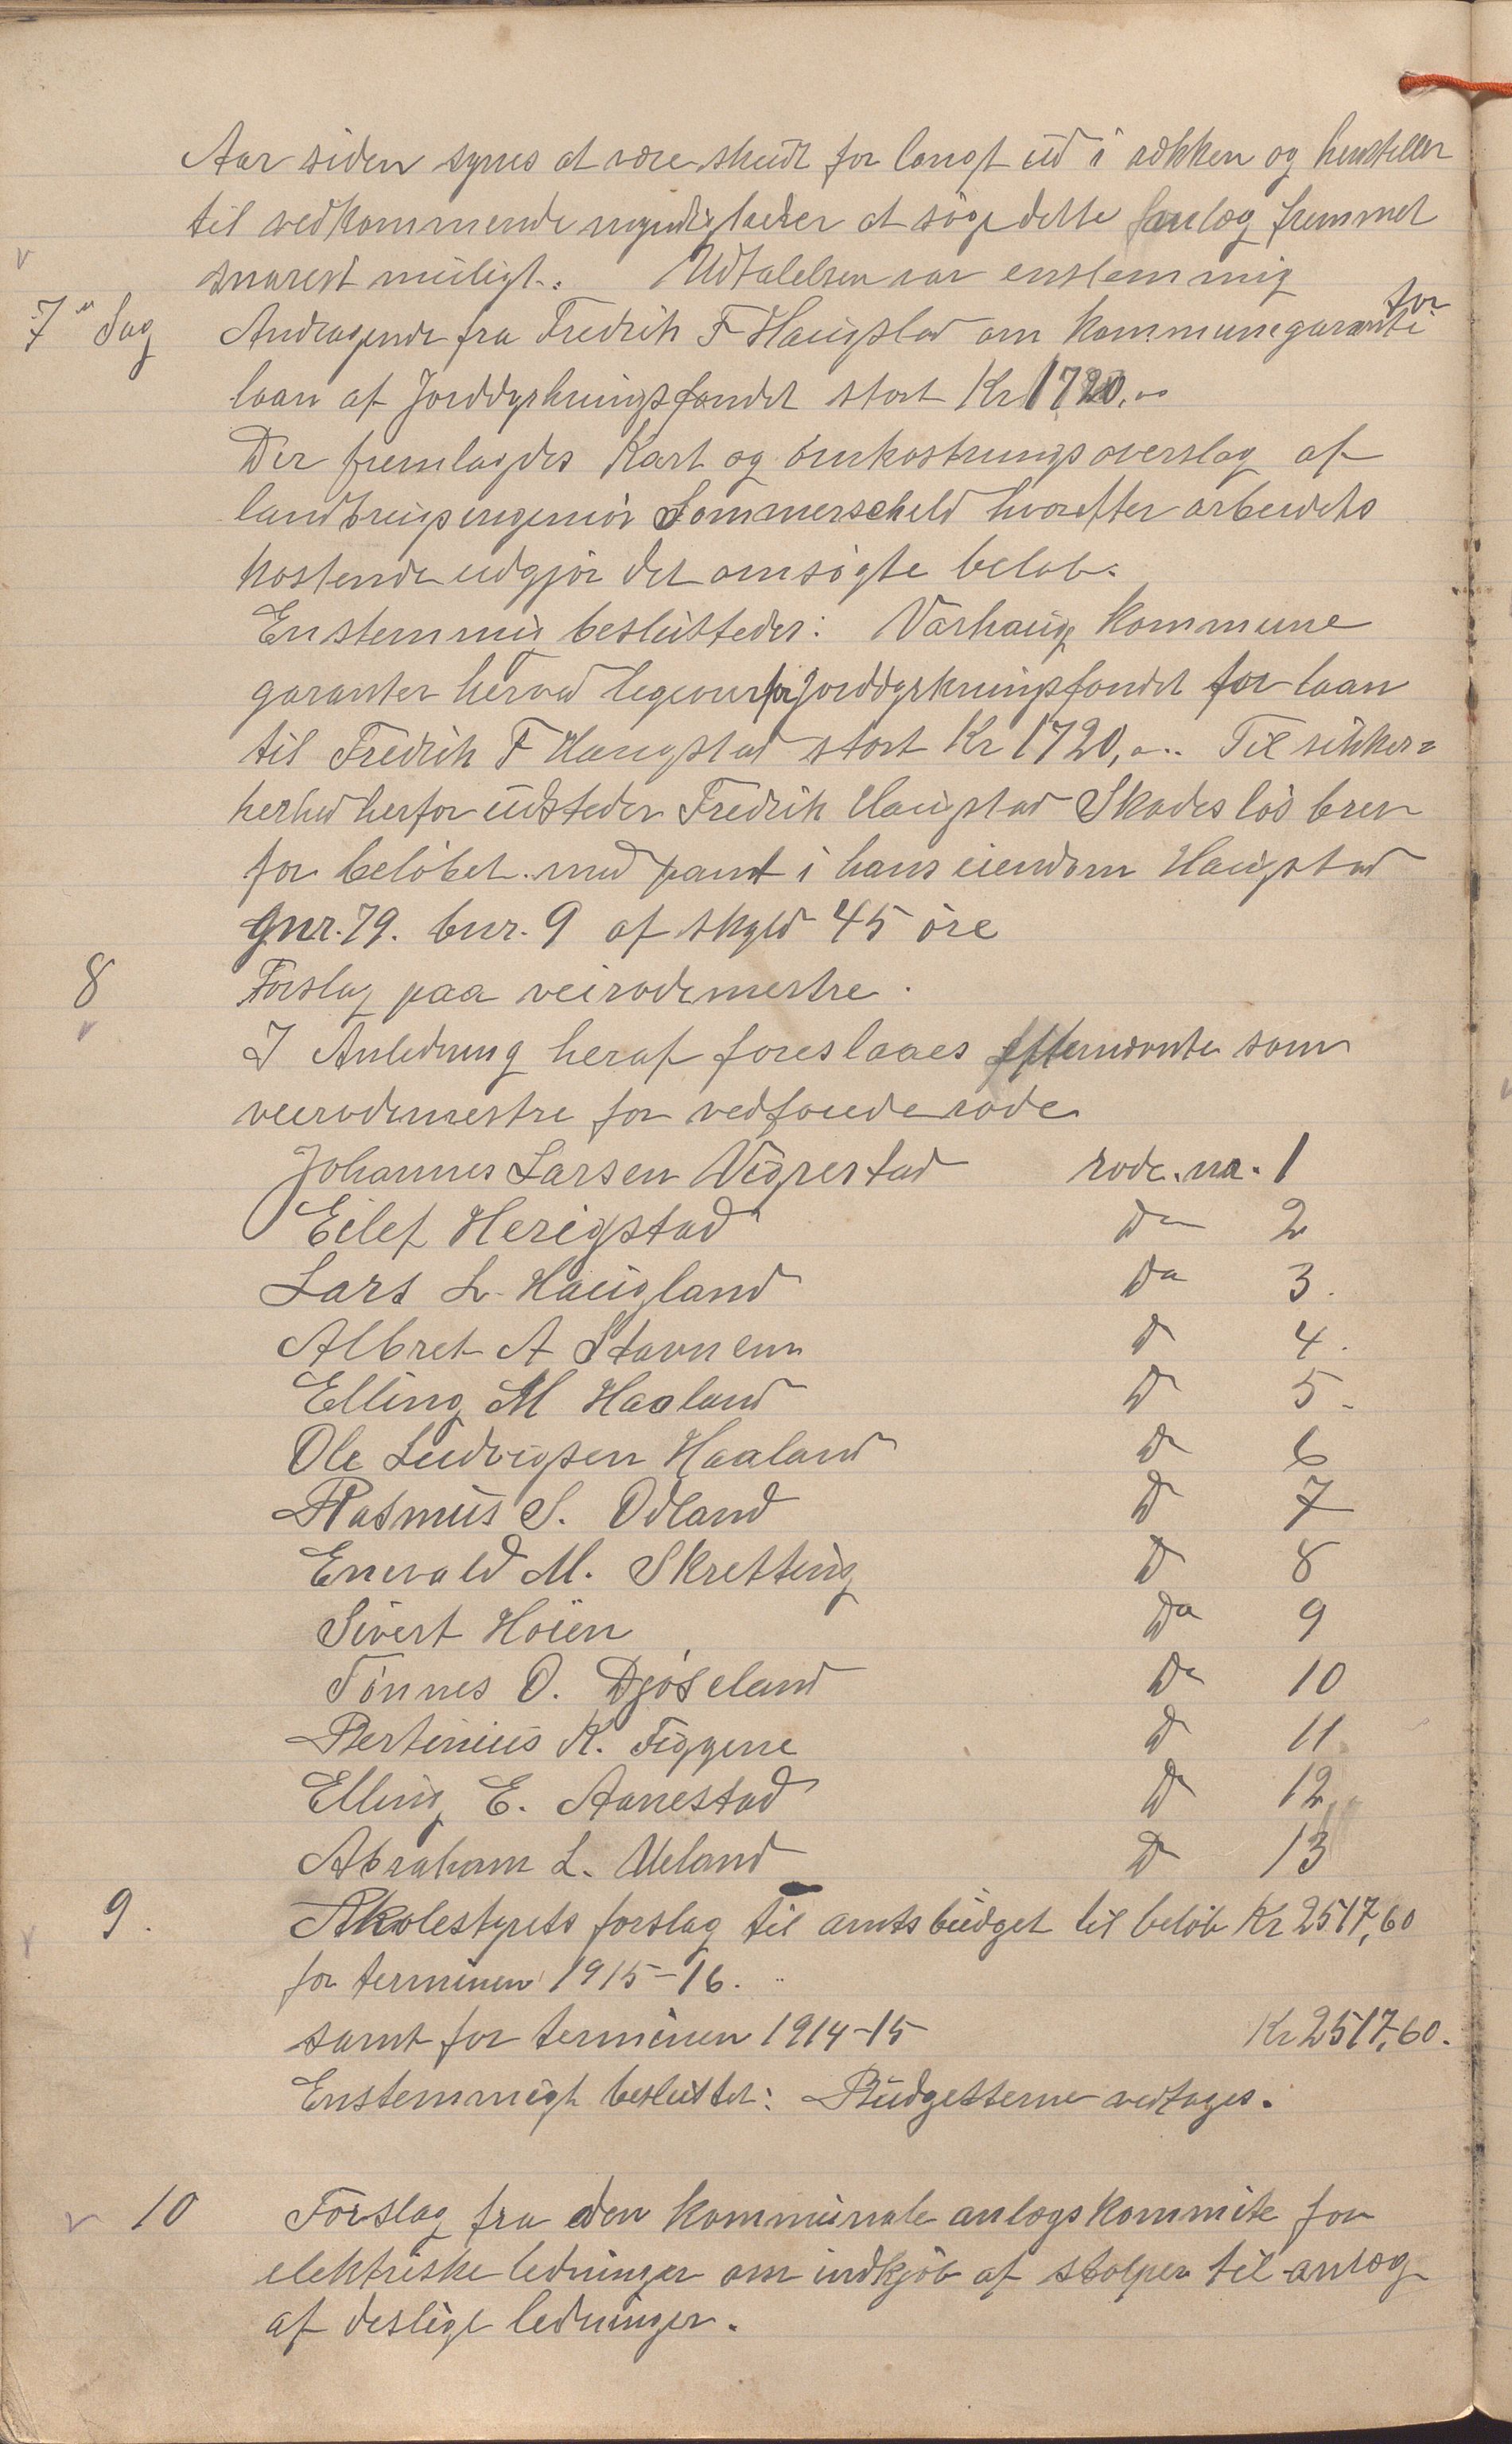 Aar siden synes at være skudt for langt ud i rækken og henstiller
til vedkommende myndigheder at søge dette anlæg fremmet
snarest muligt. Udtalelsen var enstemmig
7de Sag Andragende fra Fredrik F Haugstad om kommunegaranti for
laan af Jorddyrkningsfondet stort Kr 1720,00
Der fremlagdes Kart og omkostningsoverslag af
landbrugsingeniør Sommerscheld hvorefter arbeidets
kostende udgjør det omsøgte beløb.
Enstemmig besluttedes: Varhaug kommune
garanter herved ligeover for Jorddyrkningsfondet for laan
til Fredrik F Haugstad stort Kr 1720,00. Til sikker=
herhed herfor udsteder Fredrik Haugstad Skadesløs brev
for beløbet med pant i hans eiendom Haugstad
Gnr. 79. bnr. 9 af skyld 45 øre
8 Forslag paa veirodemestre.
I Anledning heraf foreslaaes efternævnte som
veirodemestre for vedføiede rode
Johannes Larsen Vigrestad rode. nr. 1
Eilef Herigstad Do 2
Lars L. Haugland Do 3.
Albret A Stavnem D 4.
Elling M Haaland D 5.
Ole Ludvigsen Haaland D 6
Rasmus S. Odland D 7
Enevald M. Skretting D 8
Sivert Høien Do 9
Tønnes O. Djøseland Do 10
Bertinius K. Tiggene D 11
Elling E. Aanestad D 12
Abraham L. Ueland D 13
9. Skolestyrets forslag til amtsbudget til beløb Kr 2517,60
for terminen 1915-16.
samt for terminen 1914-15 Kr 2517,60.
Enstemmigt besluttet: Budgetterne vedtages.
10 Forslag fra den kommunale anlægskommite for
elektriske ledninger om indkjøb af stolper til anlæg
af deslige ledninger.